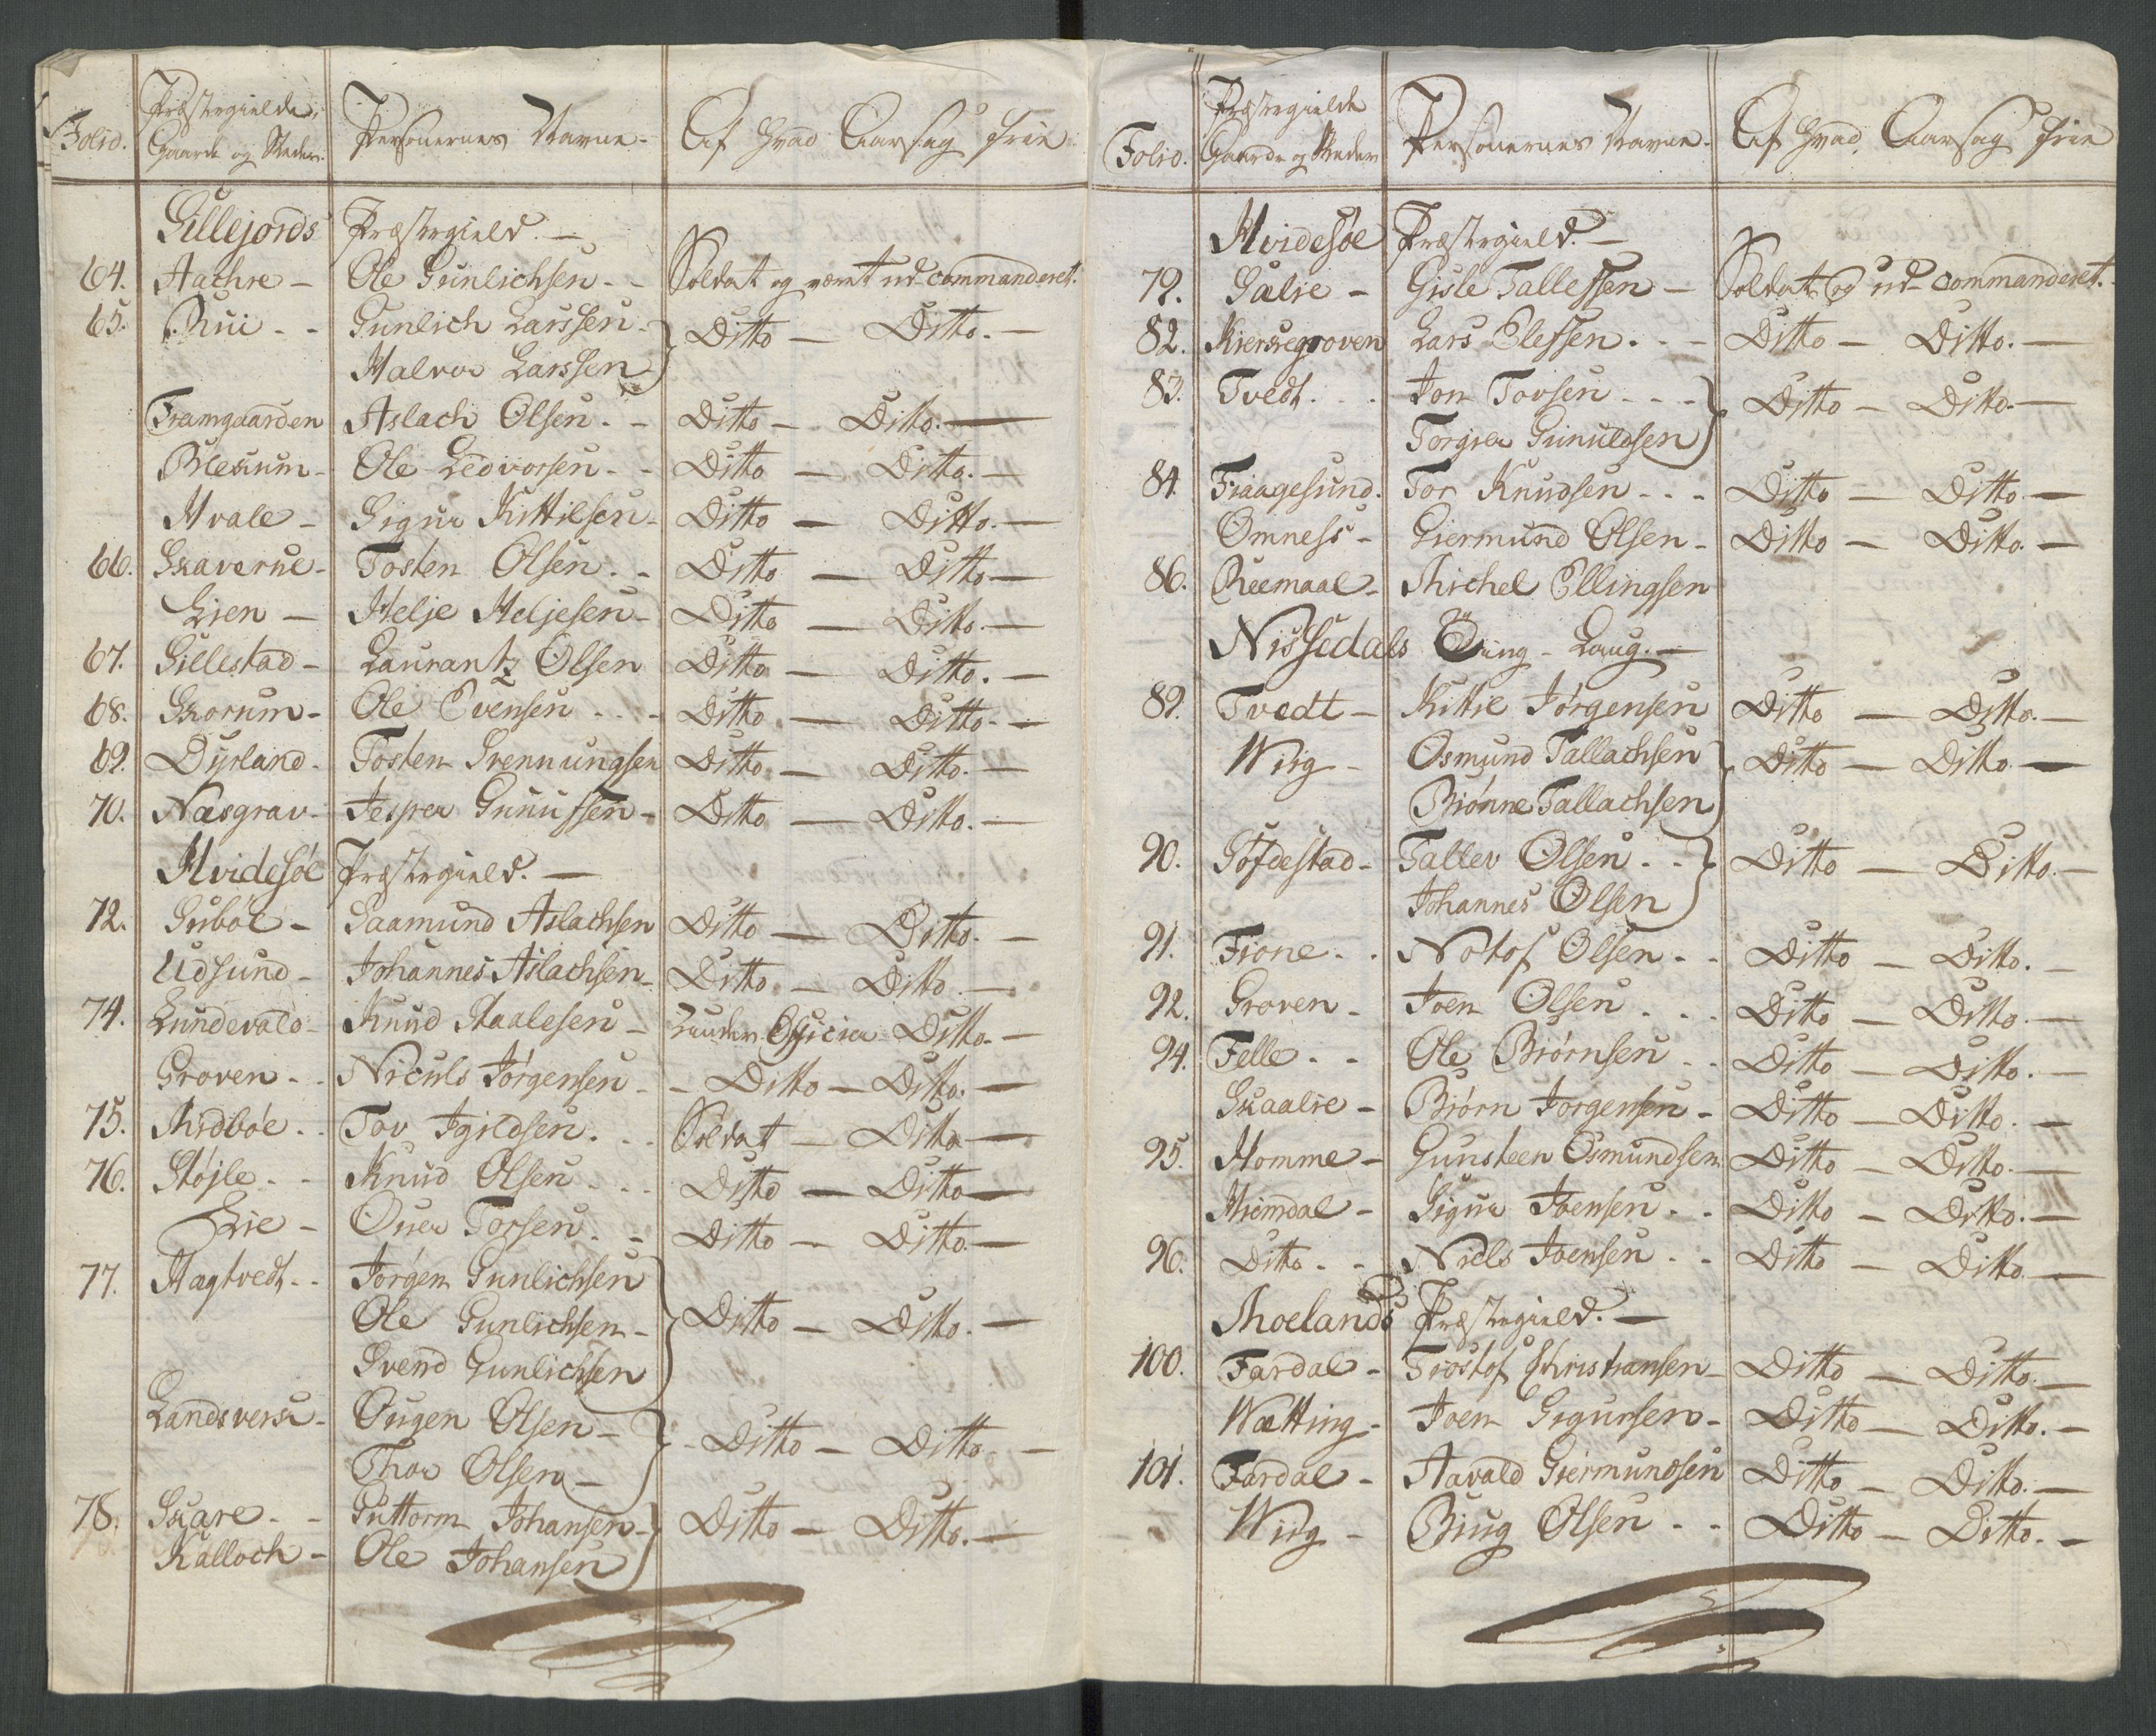 Folio. Præstegielde, Gaarde og Steder. Personernes Navne. Af hvad Aarsag frie
Sillejords Præstegield. —
64. Aachre — Ole Gunlichsen - - Soldat og været ud-commanderet.
65. Rui - - Gunlich Larssen - } Ditto — Ditto. —
Halvor Larssen
Framgaarden Aslach Olsen. - Ditto — Ditto. —
Blexum - Ole Ledvorsen - - Ditto — Ditto. —
Hvale - Sigur Kittilsen - Ditto — Ditto. —
66. Skaverne - Tosten Olsen. - Ditto — Ditto —
Lien — Helje Heljesen - Ditto — Ditto. —
67. Sillestad - Laurantz Olsen Ditto — Ditto. —
68. Skorum - Ole Evensen - - - Ditto — Ditto. —
69. Dyrland - Tosten Svennungsen Ditto — Ditto. —
70. Næsgrav - Jesper Gunussen - Ditto — Ditto. —
Hvidesöe Præstegield. —
72. Suböe - Saamund Aslachsen Ditto — Ditto. —
Udsund - Johannes Aslachsen - Ditto — Ditto —
74. Lundevald - Knud Staalesen - Under Officier Ditto. —
Groven - - Niculs Jörgensen - - Ditto — Ditto. —
75. Midböe - - Tov Jgildsen. - - Soldat — Ditto —
76. Stöjle - - Knud Olsen - - - Ditto — Ditto —
Lie - Over Torsen. - Ditto — Ditto. —
77. Hagtvedt - - Jörgen Gunlichsen } Ditto — Ditto. —
Ole Gunlichsen -
Svend Gunlichsen
Landsverk - Ougen Olsen - } Ditto — Ditto. —
Thor Olsen -
78. Skare - - Guttorm Johansen - } Ditto — Ditto. —
Kalloch - Ole Johansen
Folio. Præstegielde Gaarde og Steder Personernes Navne. Af hvad Aarsag frie
Hvidesöe Præstegield. —
79. Galie - Gisle Tallefsen — Soldat og ud-commanderet.
82. Kierregroven Lars Elefsen. - - Ditto — Ditto. —
83. Tvedt. - - Jon Tovsen - - - } Ditto — Ditto. —
Torgier Giunuldsen
84. Fraagesund. Tor Knudsen - - - Ditto — Ditto. —
Omness - Giermund Olsen - Ditto — Ditto. —
86. Reemaal - Michel Ellingsen
Nissedals Ting-Laug. —
89. Tvedt - Kittil Jörgensen Ditto — Ditto. —
Wiig - Osmund Tallachsen } Ditto — Ditto —
Biönne Tallachsen
90. Töfdestad - Tallev Olsen. - - } Ditto — Ditto. —
Johannes Olsen
91. Fione. - - Notof Olsen - - Ditto — Ditto. —
92. Groven - Joen Olsen - - - Ditto — Ditto. —
94. Felle - - Ole Biörnsen - - Ditto — Ditto. —
Skaalie - Biörn Jörgensen - Ditto — Ditto. —
95. Homme - Gunsteen Osmundsen Ditto — Ditto. —
Hiemdal - Sigur Joensen. - Ditto — Ditto. —
96. Ditto - - Niels Joensen - - Ditto — Ditto. —
Moelands Præstegield. —
100. Fardal - Trostof Christiansen - Ditto — Ditto. —
Wætting - Joen Sigursen - Ditto — Ditto. —
101. Fardal - Aavald Giermundsen Ditto — Ditto. —
Wiig - Biug Olsen - - Ditto — Ditto. —